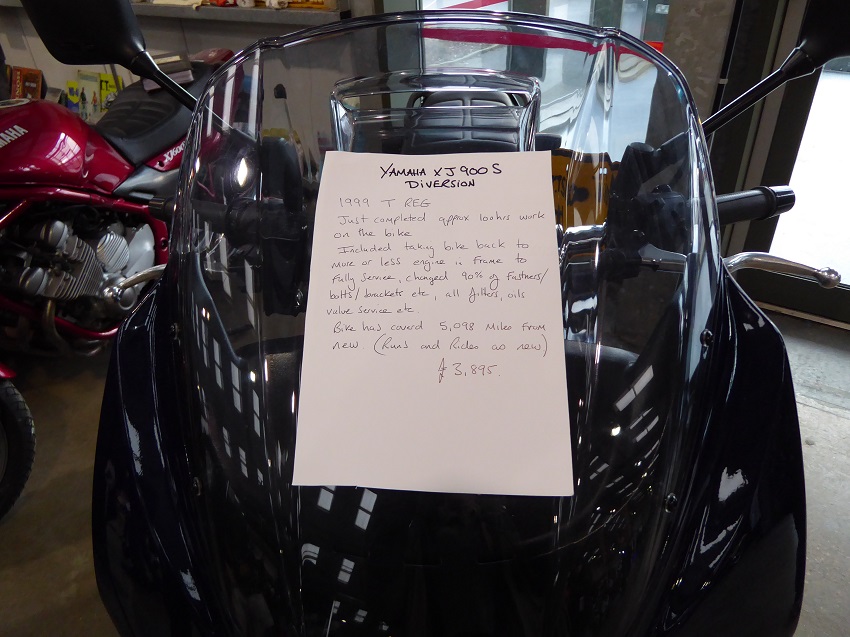 YAMAHA XJ900S
DIVERSION
1999 T REG
Just completed approx 100hrs work
on the bike
Included taking bike back to
more or less engine in frame to
fully service, changed 90% of fastners/
bolts/brackets etc, all filters, oils
valve service etc.
Bike has coverd 5,098 miles from
new. (Runs and Rides as new)
£3,895.
YAMAHA
XJ600